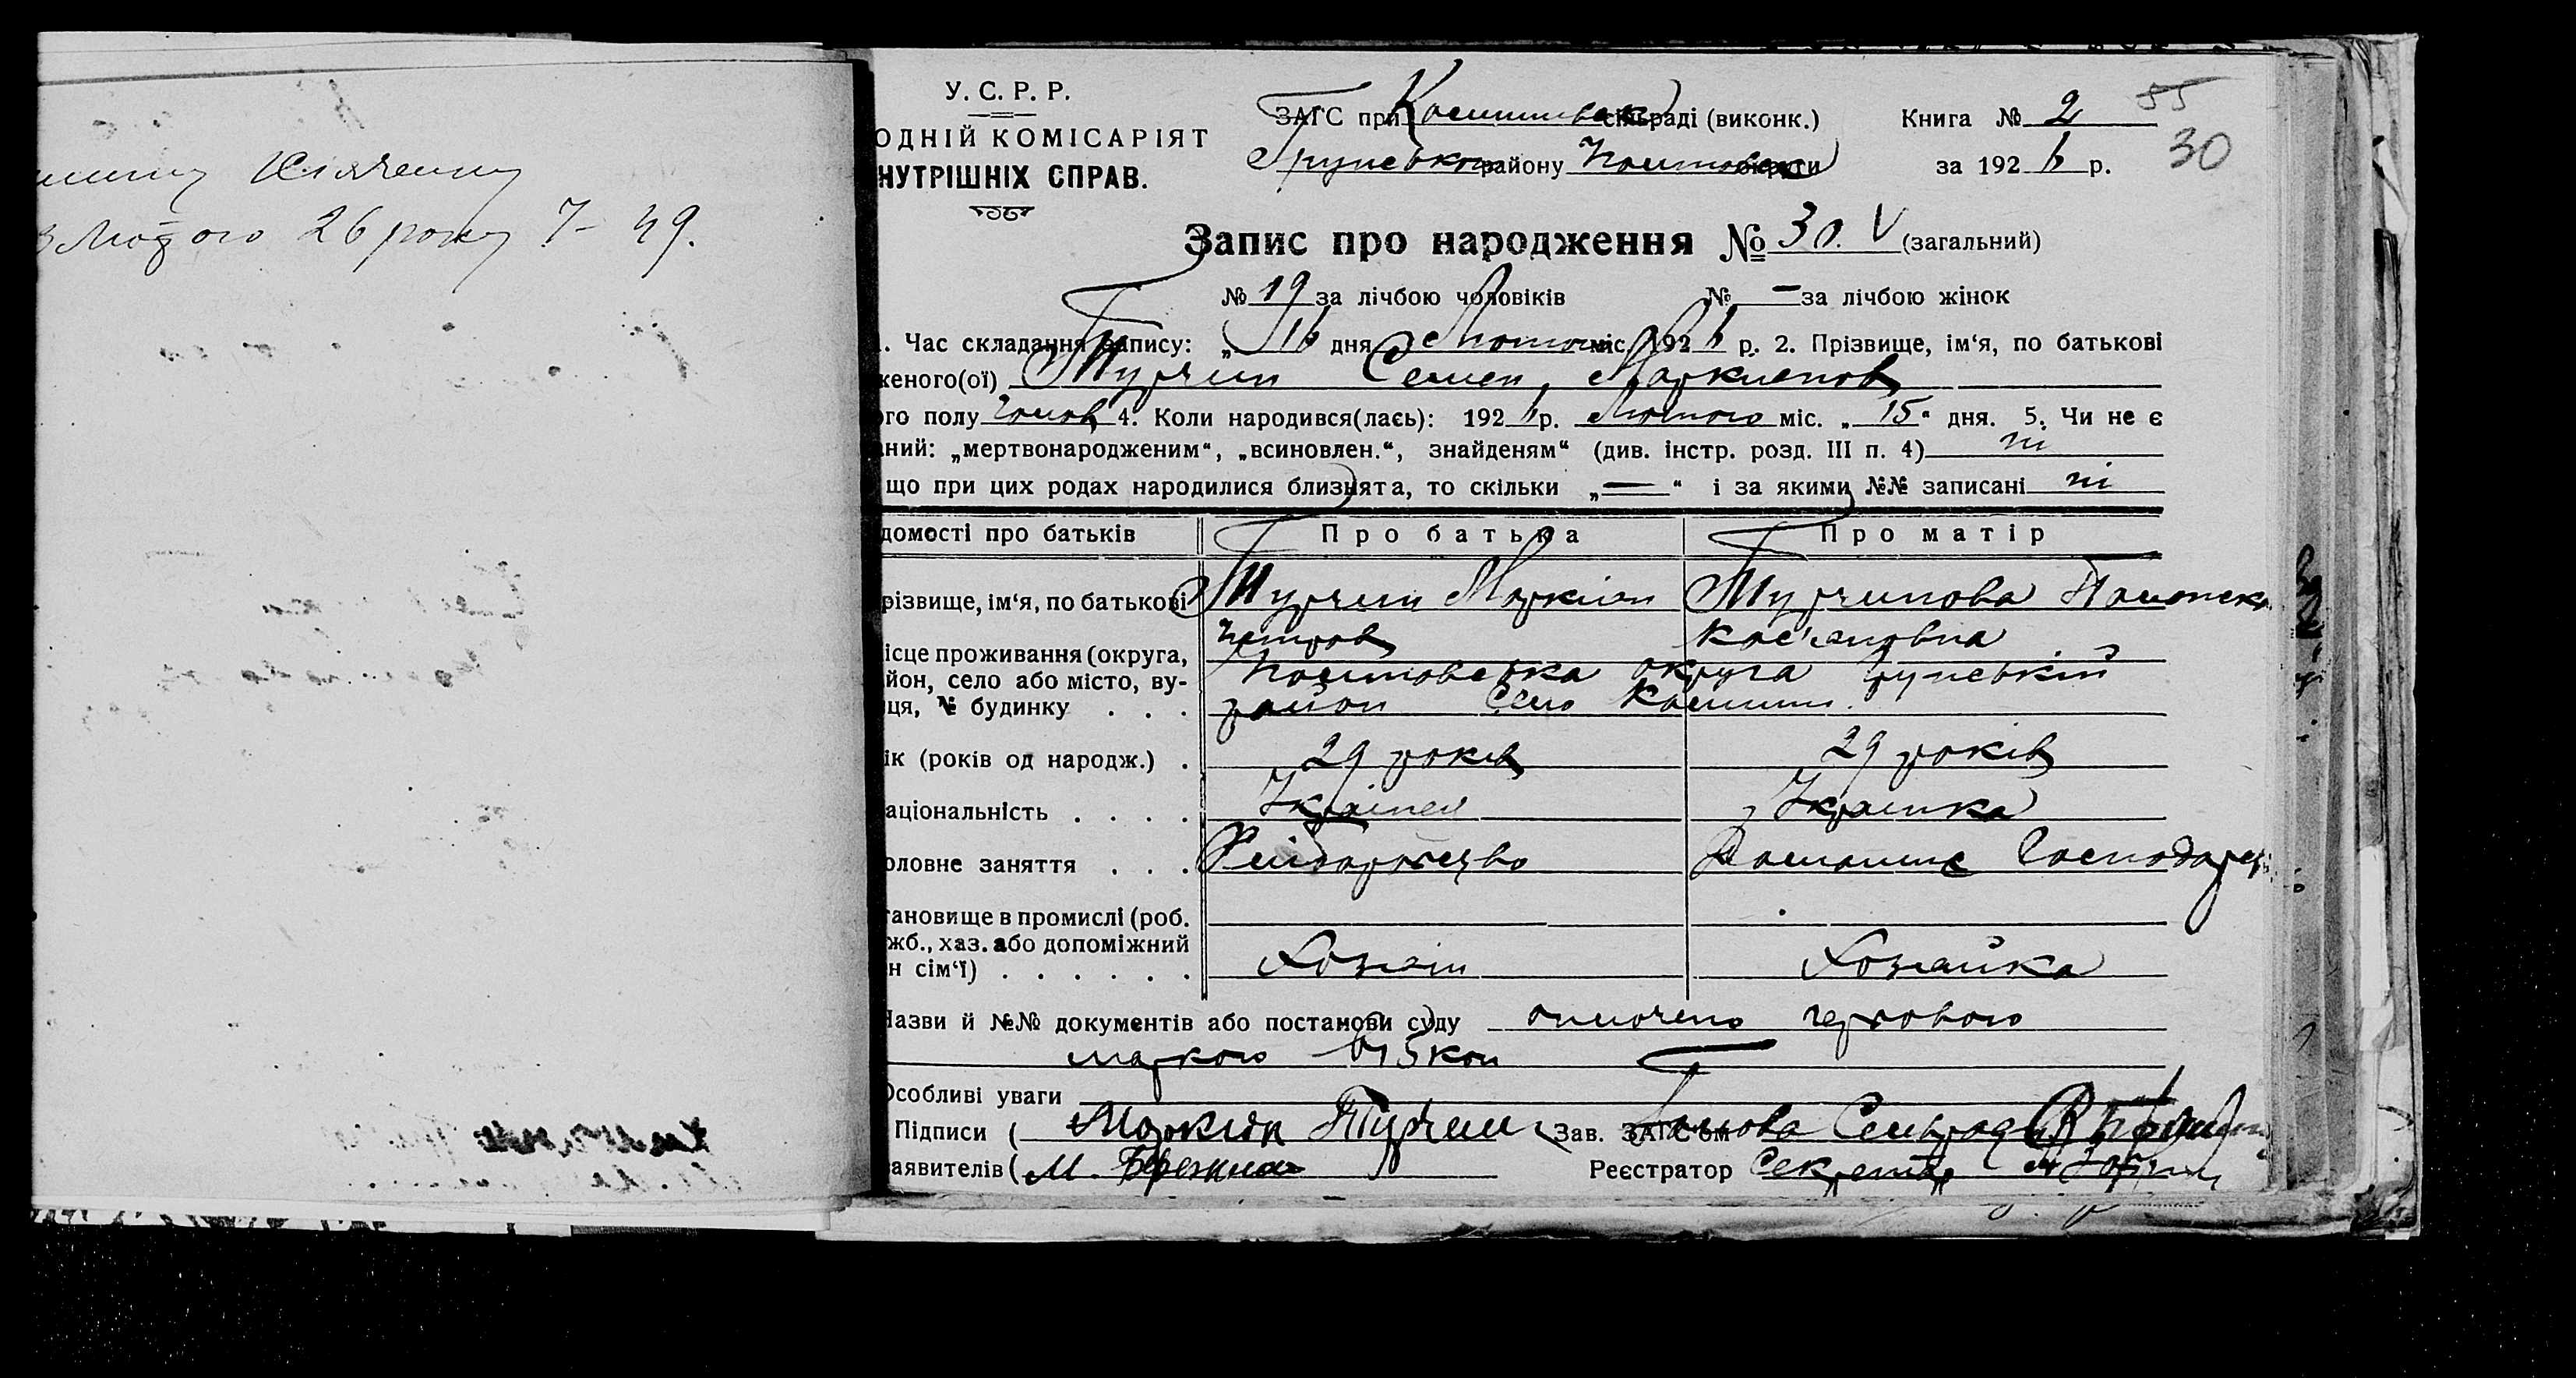 Лютого 26 року 7- 49.
У. С. Р. Р.
ОДНІЙ КОМІСАРІЯТ
НУТРІШНІХ СПРАВ.
ЗАГС при сільраді (виконк.)
Грунського району округи
Книга № 2
за 1926 р.
55
30
Запис про народження № 30. V (загальний)
№ 19 за лічбою чоловіків № — за лічбою жінок
1. Час складання запису: „ 16 дня Лютого міс. 1926 р. 2. Прізвище, ім‘я, по батькові
женого(ої) Турчин Семен Маркіянов
ого полу чолов 4. Коли народився(лаєь): 1926 р. Лютого міс. „ 15 “ дня. 5. Чи не є
аний: „мертвонародженим“, „всиновлен.“, знайденям“ (див. інстр. розд. III п. 4) ні
що при цих родах народилися близнята, то скільки „—“ і за якими №№ записані ні
домості про батьків Про батька Про матір
різвище, ім‘я, по батькові Турчин Маркіян Турчинова
Петров Кас'яновна
ісце проживання (округа, округа Грунський
йон, село або місто, ву- район Село
ця, № будинку . . .
ік (років од народж.) . 29 років 29 років
аціональність . . . . Українец Українка
оловне заняття . . . Хліборобство Домашнє Господар
тановище в промислі (роб.
жб., хаз. або допоміжний
н сім‘ї) . . . . . . Хозяін Хозяйка
Назви й №№ документів або постанови суду оплочено гербовою
маркою в 15 коп
Особливі уваги
Підписи ( Маркіян Турчин Зав. ЗАГС‘ом Голова Сельрад
заявителів ( М. Реєстратор Секретар